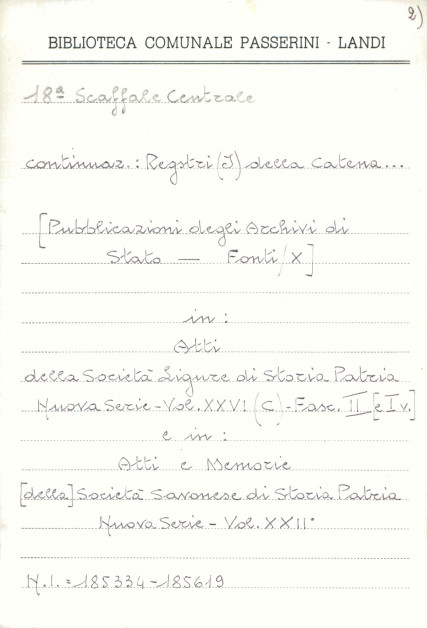 2)
BIBLIOTECA COMUNALE PASSERINI - LANDI
18ª Scaffale Centrale
continuaz.: Registri (I) della Catena...
[Pubblicazioni degli Archivi di
Stato — Fonti/X]
in:
Atti
della Società Ligure di Storia Patria
Nuova Serie - Vol. XXVI (C) - Fasc. II [e Iv.]
e in:
Atti e Memorie
[della] Società Savonese di Storia Patria
Nuova Serie - Vol. XXII°
N.I. = 185334 - 185619